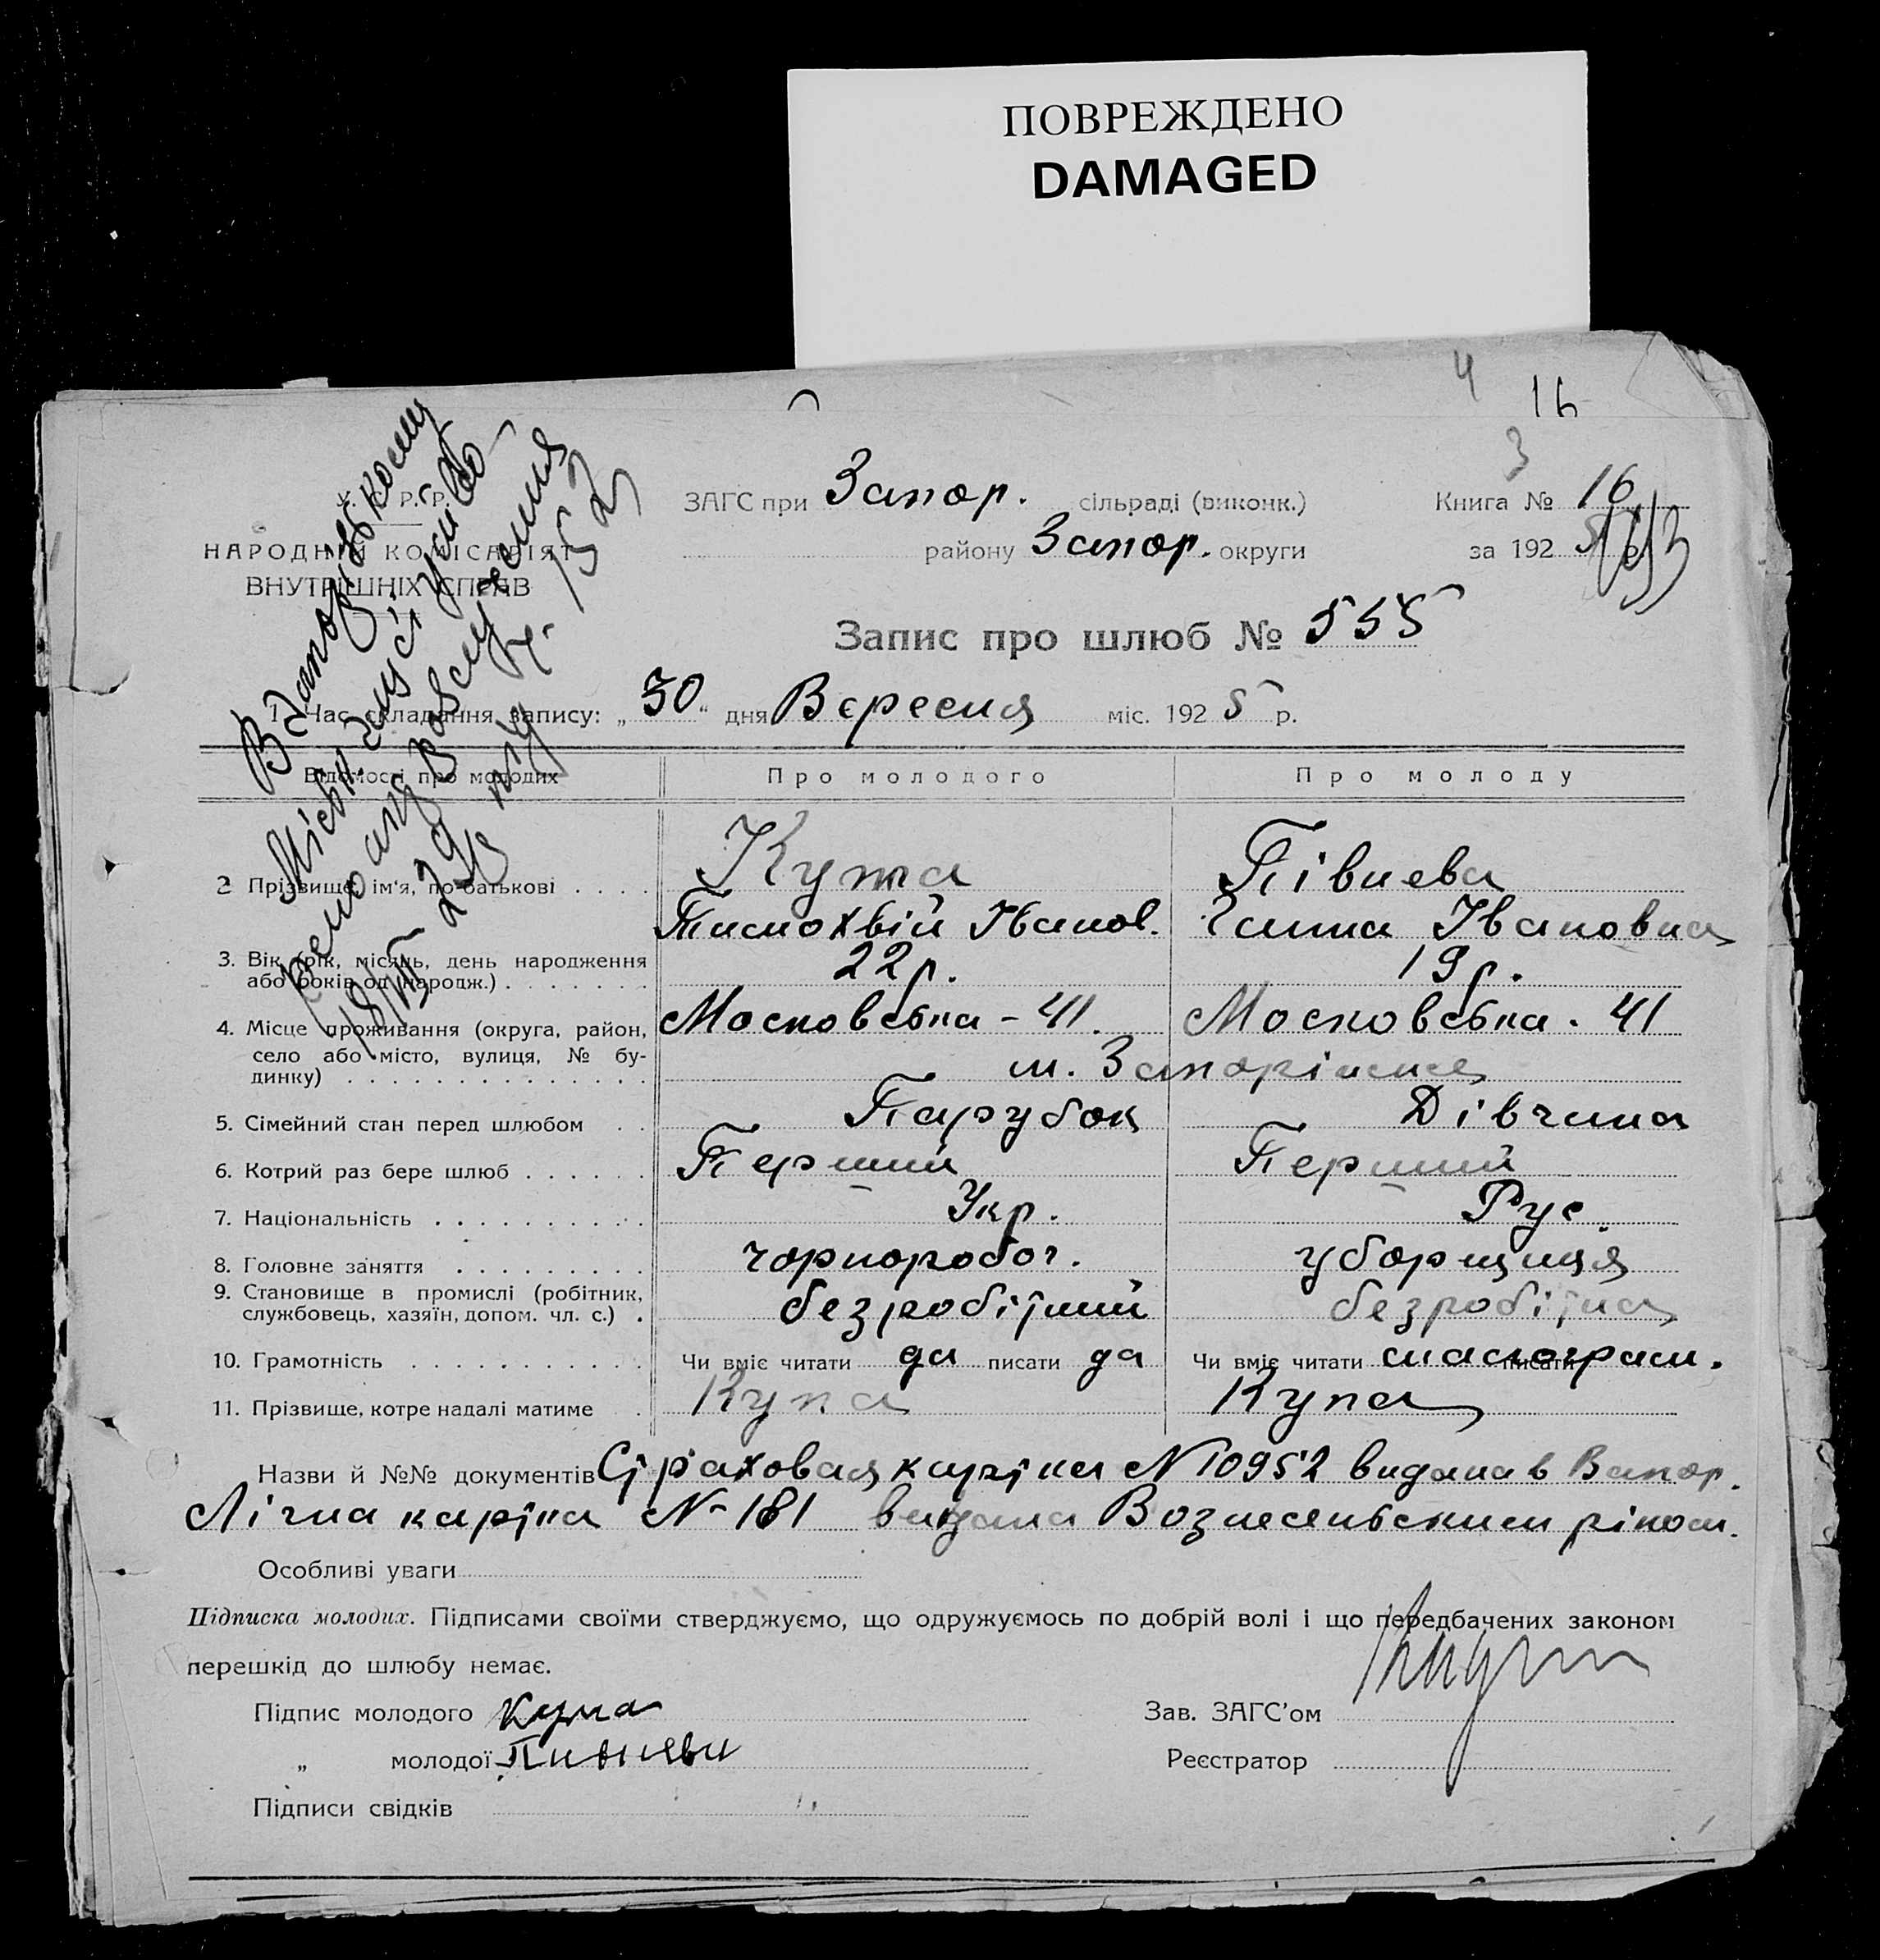 ПОВРЕЖДЕНО
DAMAGED
4
16
3
У. С. Р. Р.
НАРОДНІЙ КОМІСАРІЯТ
ВНУТРІШНІХ СПРАВ
ЗАГС при Запор. сільраді (виконк.)
Книга № 16
району Запор. округи
за 192 5 р.
Запис про шлюб № 555
1. Час складання запису: „30“ дня Вересня міс. 192 5 р.
Відомості про молодих Про молодого Про молоду
2 Прізвище, ім'я, по-батькові . . . . Купа Півнева
Тимохвій Іванов. Ганна Івановна
3. Вік (рік, місяць, день народження
або років од народж.) . . . . . . . 22 р. 19 р.
4. Місце проживання (округа, район, Московська - 41. Московська . 41
село або місто, вулиця, № бу-
динку) . . . . . . . . . . . . . . м. Запоріжжя
5. Сімейний стан перед шлюбом . . Парубок Дівчина
6. Котрий раз бере шлюб . . . . . . Перший Перший
7. Національність . . . . . . . . . . Укр. Рус.
8. Головне заняття . . . . . . . . . чорноробоч. уборщиця
9. Становище в промислі (робітник,
службовець, хазяїн, допом. чл. с.) . безробітний безробітна
10. Грамотність . . . . . . . . . . . Чи вміє читати да писати да Чи вміє читати малограм. писати
11. Прізвище, котре надалі матиме . Купа Купа
Назви й №№ документів Страховая картка № 10952 видана в Запор.
Лічна картка № 181 видана Вознесенським ріком.
Особливі уваги
Підписка молодих. Підписами своїми стверджуємо, що одружуємось по добрій волі і що передбачених законом
перешкід до шлюбу немає.
Підпис молодого Купа
Зав. ЗАГС'ом
„ молодої
Реєстратор
Підписи свідків